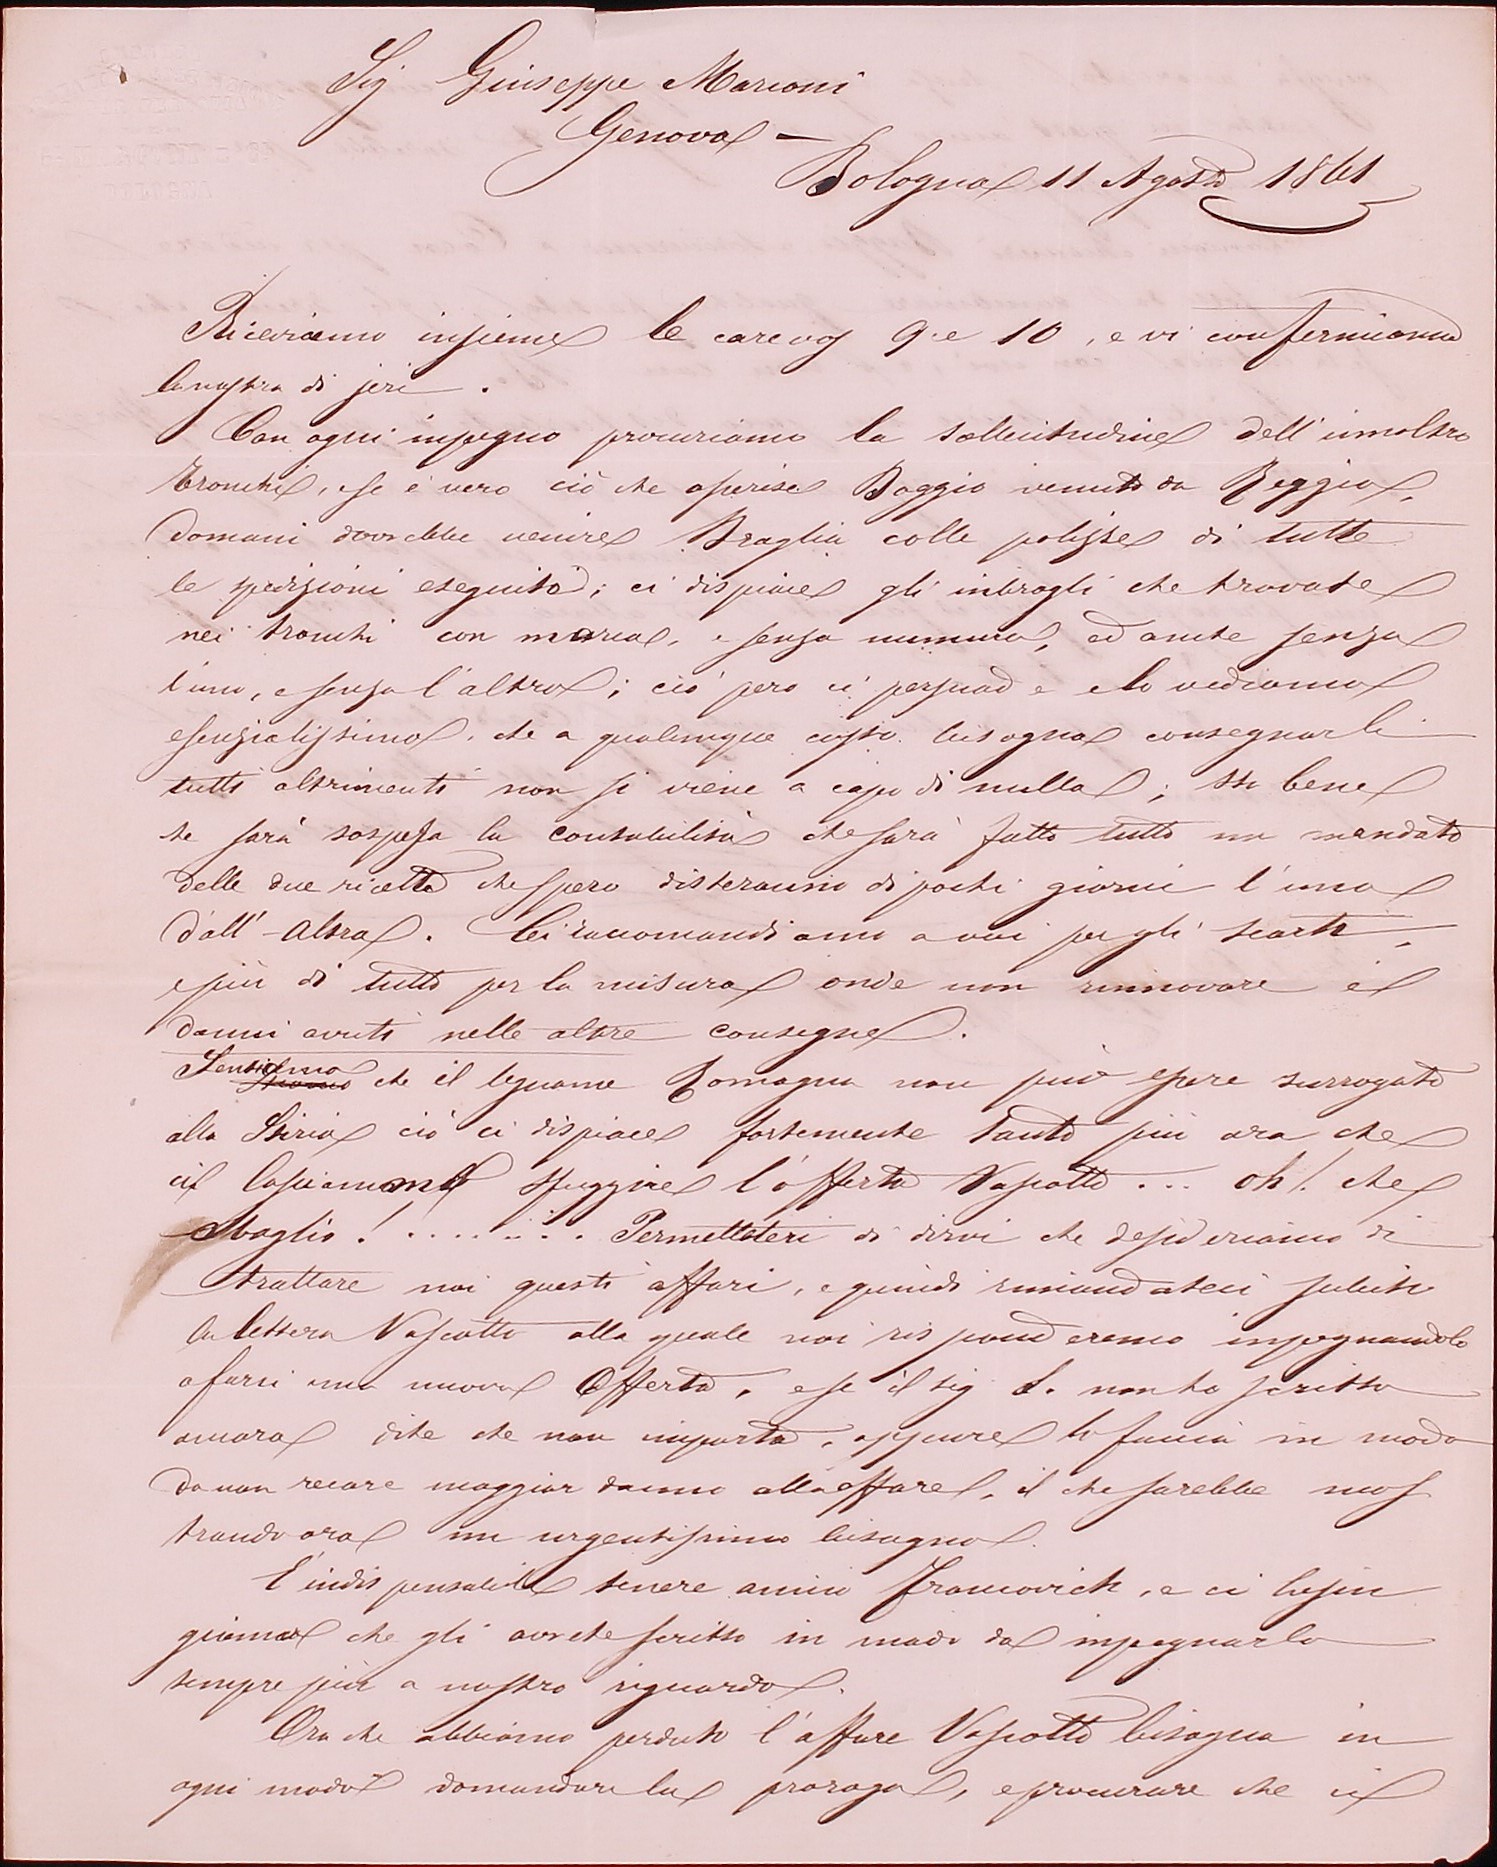 Sig Giuseppe Marconi
Genova –
Bologna 11 Agosto 1861
Riceviamo insieme le care vos 9 e 10, e vi confermiamo
la nostra di jeri.
Con ogni impegno procuriamo la sollecitudine dell'inoltro
tronchi, se è vero ciò che asserisce Baggio venuto da Reggio,
domani dovrebbe venire Braglia colle polizze di tutte
le spedizioni eseguite; ci dispiace gli imbrogli che trovate
nei tronchi con marca, e senza numero, ed anche senza
l'uno, e senza l'altro; ciò però ci persuade e lo vediamo
essenzialissimo, che a qualunque costo bisogna consegnarli
tutti altrimenti non si viene a capo di nulla; sta bene
che sarà sospesa la contabilità che sarà fatto tutto un mandato
delle due ricette che spero disteranno di pochi giorni l'una
dall'-altra. Ci raccomandiamo a voi per gli scarti,
e più di tutto per la misura onde non rinnovare i
danni avuti nelle altre consegne.
Sentiamo che il legname Romagna non può essere surrogato
alla Stiria ciò ci dispiace fortemente tanto più ora che
ci lasciammo sfuggire l'offerta Vascotto ... oh! che
sbaglio! ........ Permetteteci di dirvi che desideriamo di
trattare noi questi affari, e quindi rimandateci subito
la lettera Vascotto alla quale noi risponderemo impegnandolo
a farci una nuova Offerta, e se il sig S. non ha scritto
ancora dite che non importa, oppure lo faccia in modo
da non recare maggior danno allo affare, il che sarebbe mos
trando ora un urgentissimo bisogno.
È indispensabile tenere amico Francovich, e ci lusin
ghiamo che gli avrete scritto in modo da impegnarlo
sempre più a nostro riguardo.
Ora che abbiamo perduto l'affare Vascotto bisogna in
ogni modo domandare la proroga, e procurare che ci